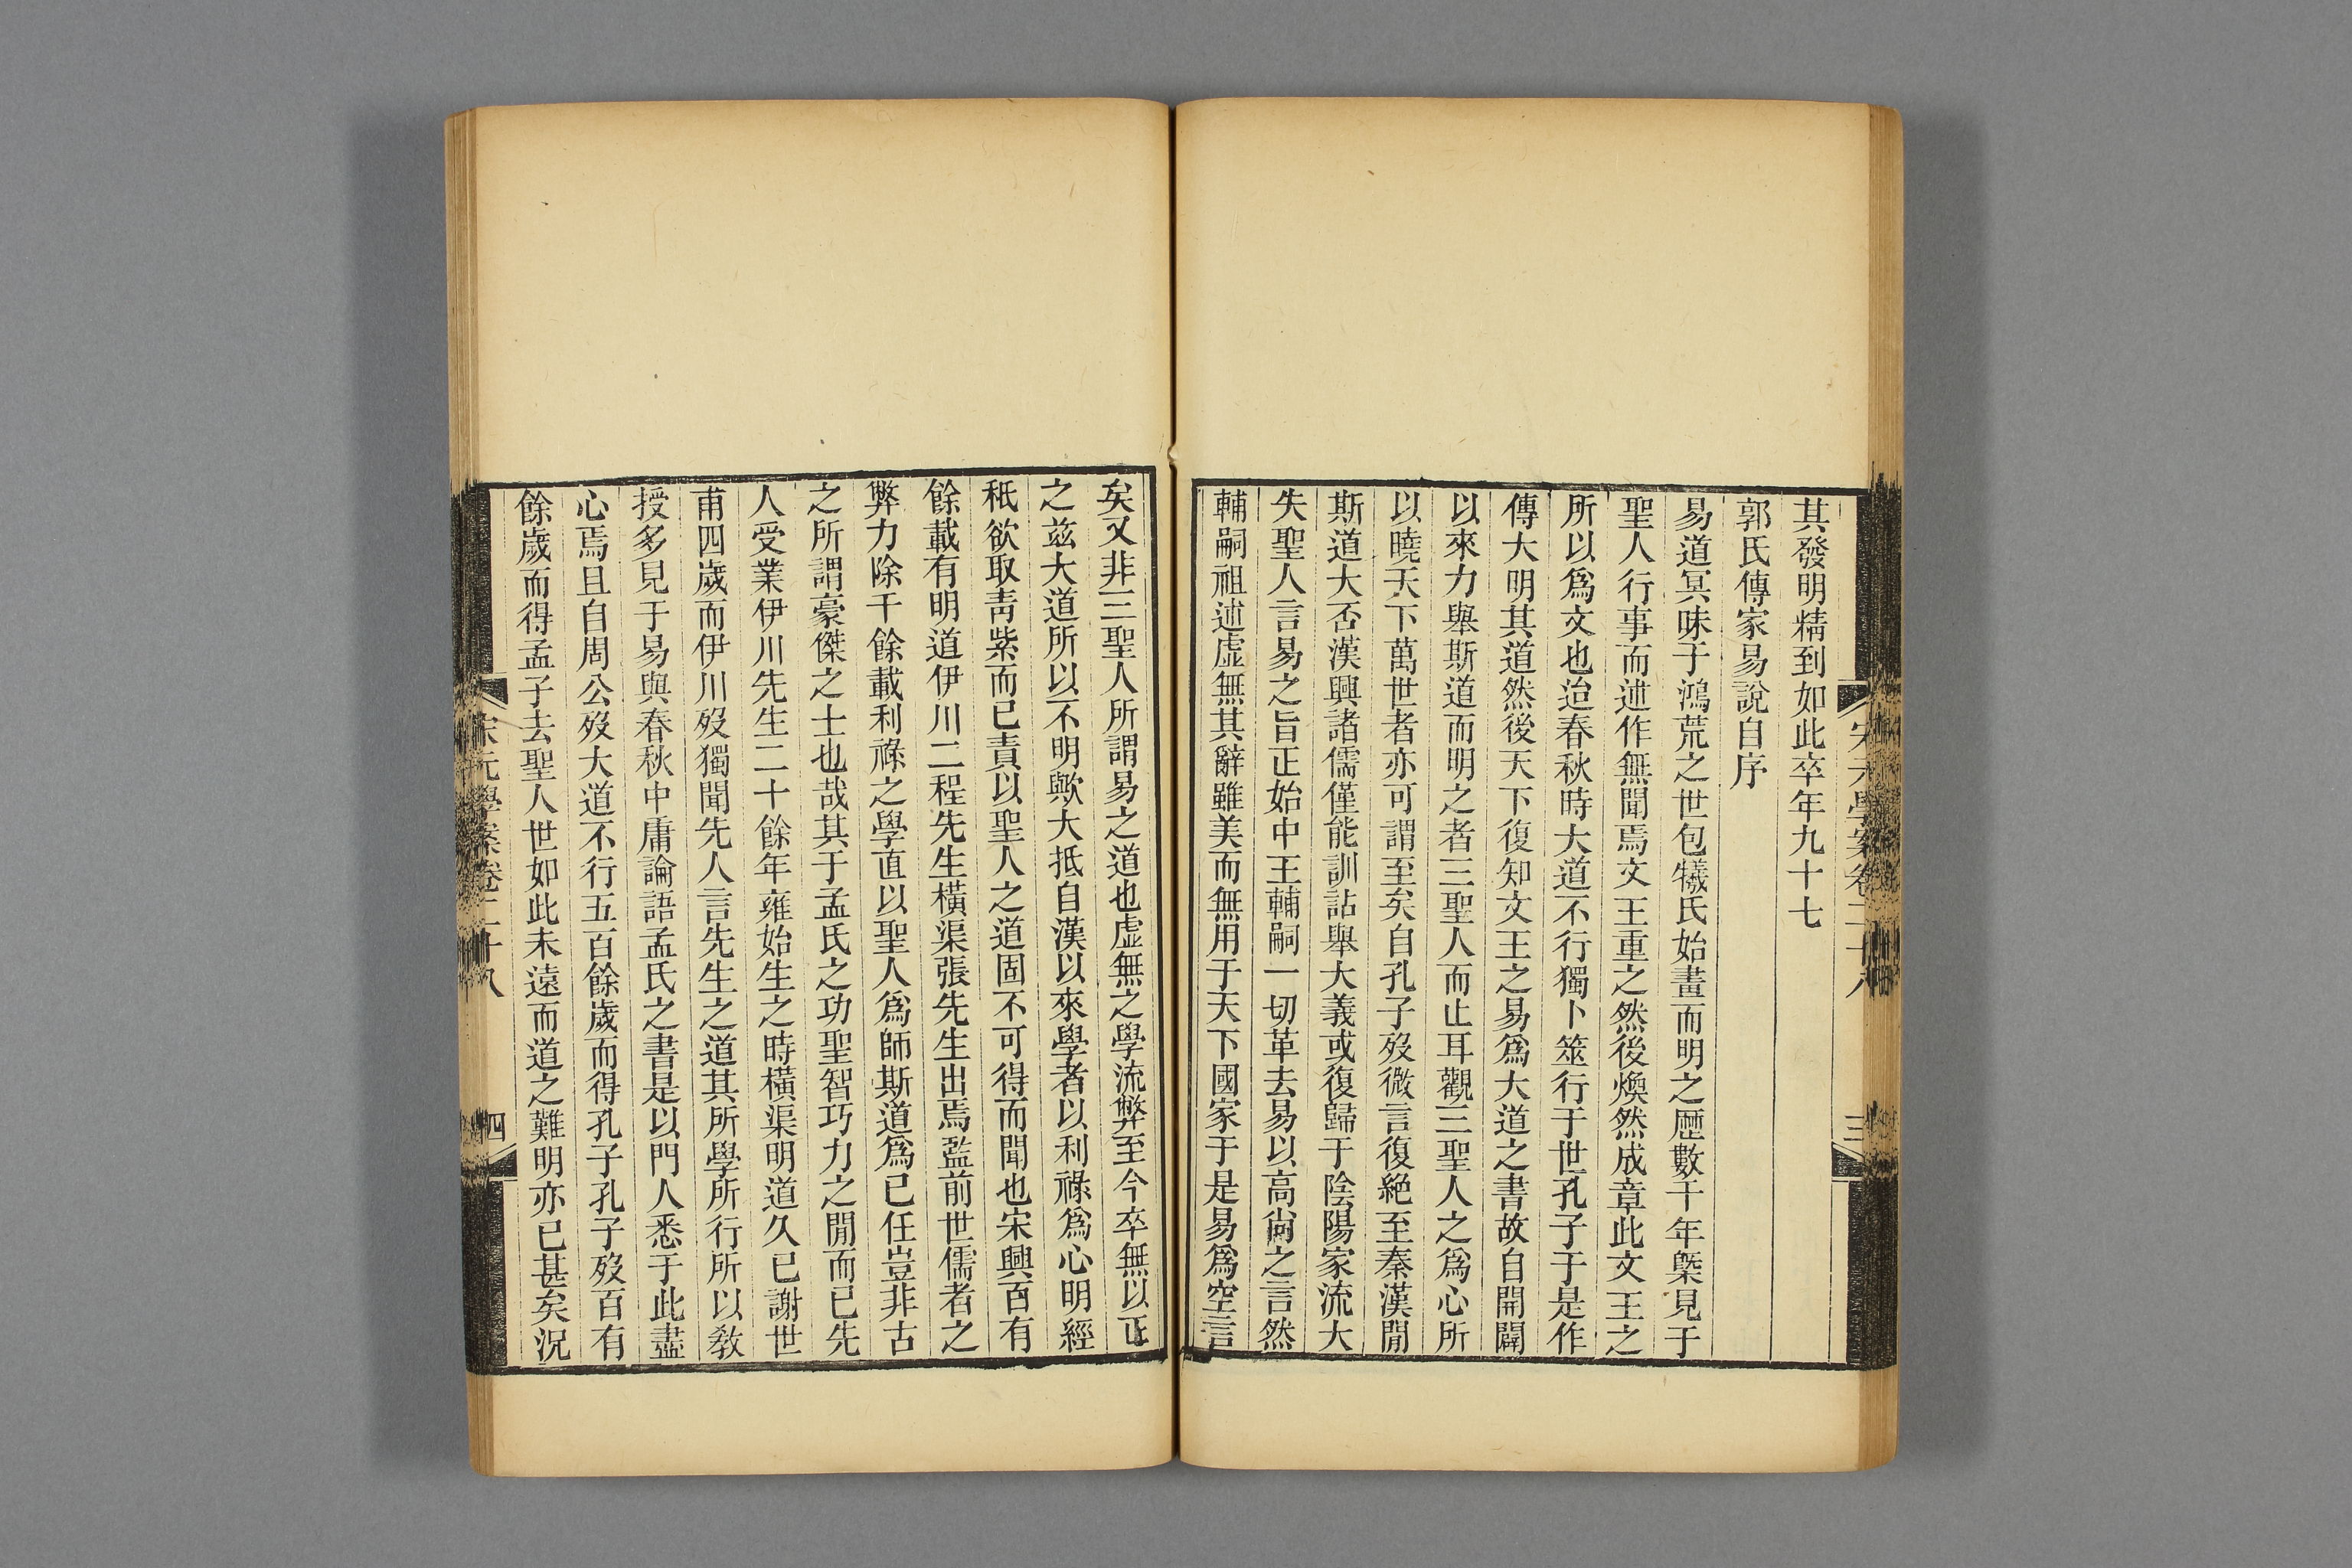 其發明精到如此卒年九十七
郭氏傳家易說自序
易道冥昧于鴻荒之世包犧氏始畫而明之歷數千年槩見于
聖人行事而述作無聞焉文王重之然後煥然成章此文王之
所以爲文也迨春秋時大道不行獨卜筮行于世孔子于是作
傳大明其道然後天下復知文王之易爲大道之書故自開闢
以來力舉斯道而明之者三聖人而止耳觀三聖人之爲心所
以曉天下萬世者亦可謂至矣自孔子歿微言復絕至秦漢閒
斯道大否漢興諸儒僅能訓詁舉大義或復歸于陰陽家流大
失聖人言易之旨正始中王輔嗣一切革去易以高尙之言然
輔嗣祖述虛無其辭雖美而無用于天下國家于是易爲空言
矣又非三聖人所謂易之道也虛無之學流弊至今卒無以正
之兹大道所以不明歟大抵自漢以來學者以利祿爲心明經
秖欲取靑紫而已責以聖人之道固不可得而聞也宋興百有
餘載有明道伊川二程先生橫渠張先生出焉監前世儒者之
弊力除千餘載利祿之學直以聖人爲師斯道爲已任豈非古
之所謂豪傑之士也哉其于孟氏之功聖智巧力之閒而已先
人受業伊川先生二十餘年雍始生之時橫渠明道久已謝世
甫四歲而伊川歿獨聞先人言先生之道其所學所行所以敎
授多見于易與春秋中庸論語孟氏之書是以門人悉于此盡
心焉且自周公歿大道不行五百餘歲而得孔子孔子歿百有
餘歲而得孟子去聖人世如此未遠而道之難明亦已甚矣況
宋元學案卷二十八
四